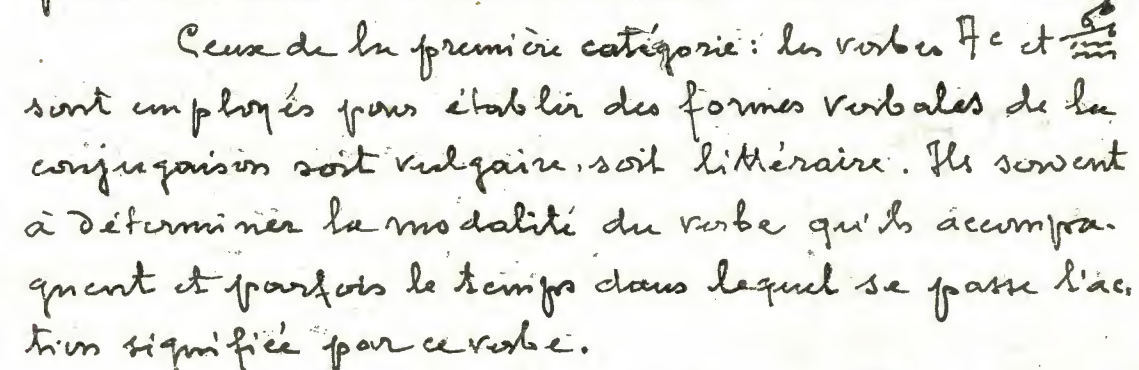 Ceux de la première catégorie : les verbes et
sont employés pour établir des formes verbales de la
conjugaison soit vulgaire, soit littéraire. Ils servent
à déterminer la modalité du verbe qu'ils accompa-
gnent et parfois le temps dans lequel se passe l'ac-
tion signifiée par ce verbe.